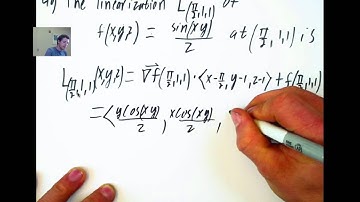 the linearization L(π/2,1,1) of
f(x,y,z) = sin(xy)/2 at (π/2,1,1) is
L(π/2,1,1)(x,y,z) = ∇f(π/2,1,1)·<x-π/2, y-1, z-1> + f(π/2,1,1)
= <ycos(xy)/2, xcos(xy)/2,